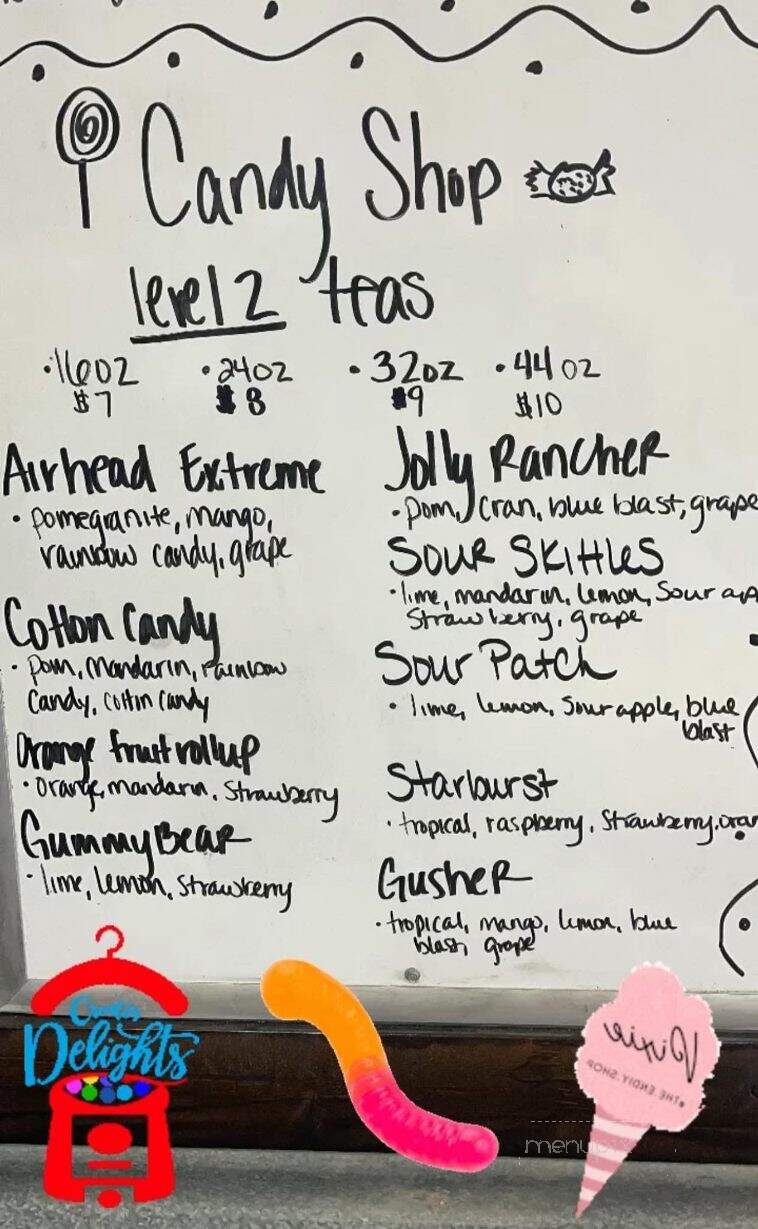 Candy Shop
level 2 teas
•16oz •24oz •32oz •44oz
$7 $8 $9 $10
Airhead Extreme
• pomegranite, mango,
rainbow candy, grape
Cotton Candy
• pom, mandarin, rainbow
candy, cotton candy
Orange fruit rollup
• Orange, mandarin, strawberry
Gummy Bear
• lime, lemon, strawberry
Jolly Rancher
• pom, cran, blue blast, grape
Sour Skittles
• lime, mandarin, lemon, sour ap
strawberry, grape
Sour Patch
• lime, lemon, sour apple, blue
blast
Starburst
• tropical, raspberry, strawberry, oran
Gusher
• tropical, mango, lemon, blue
blast, grape
Delights
Pixie
THE.ENDIY.SHOP
menupix